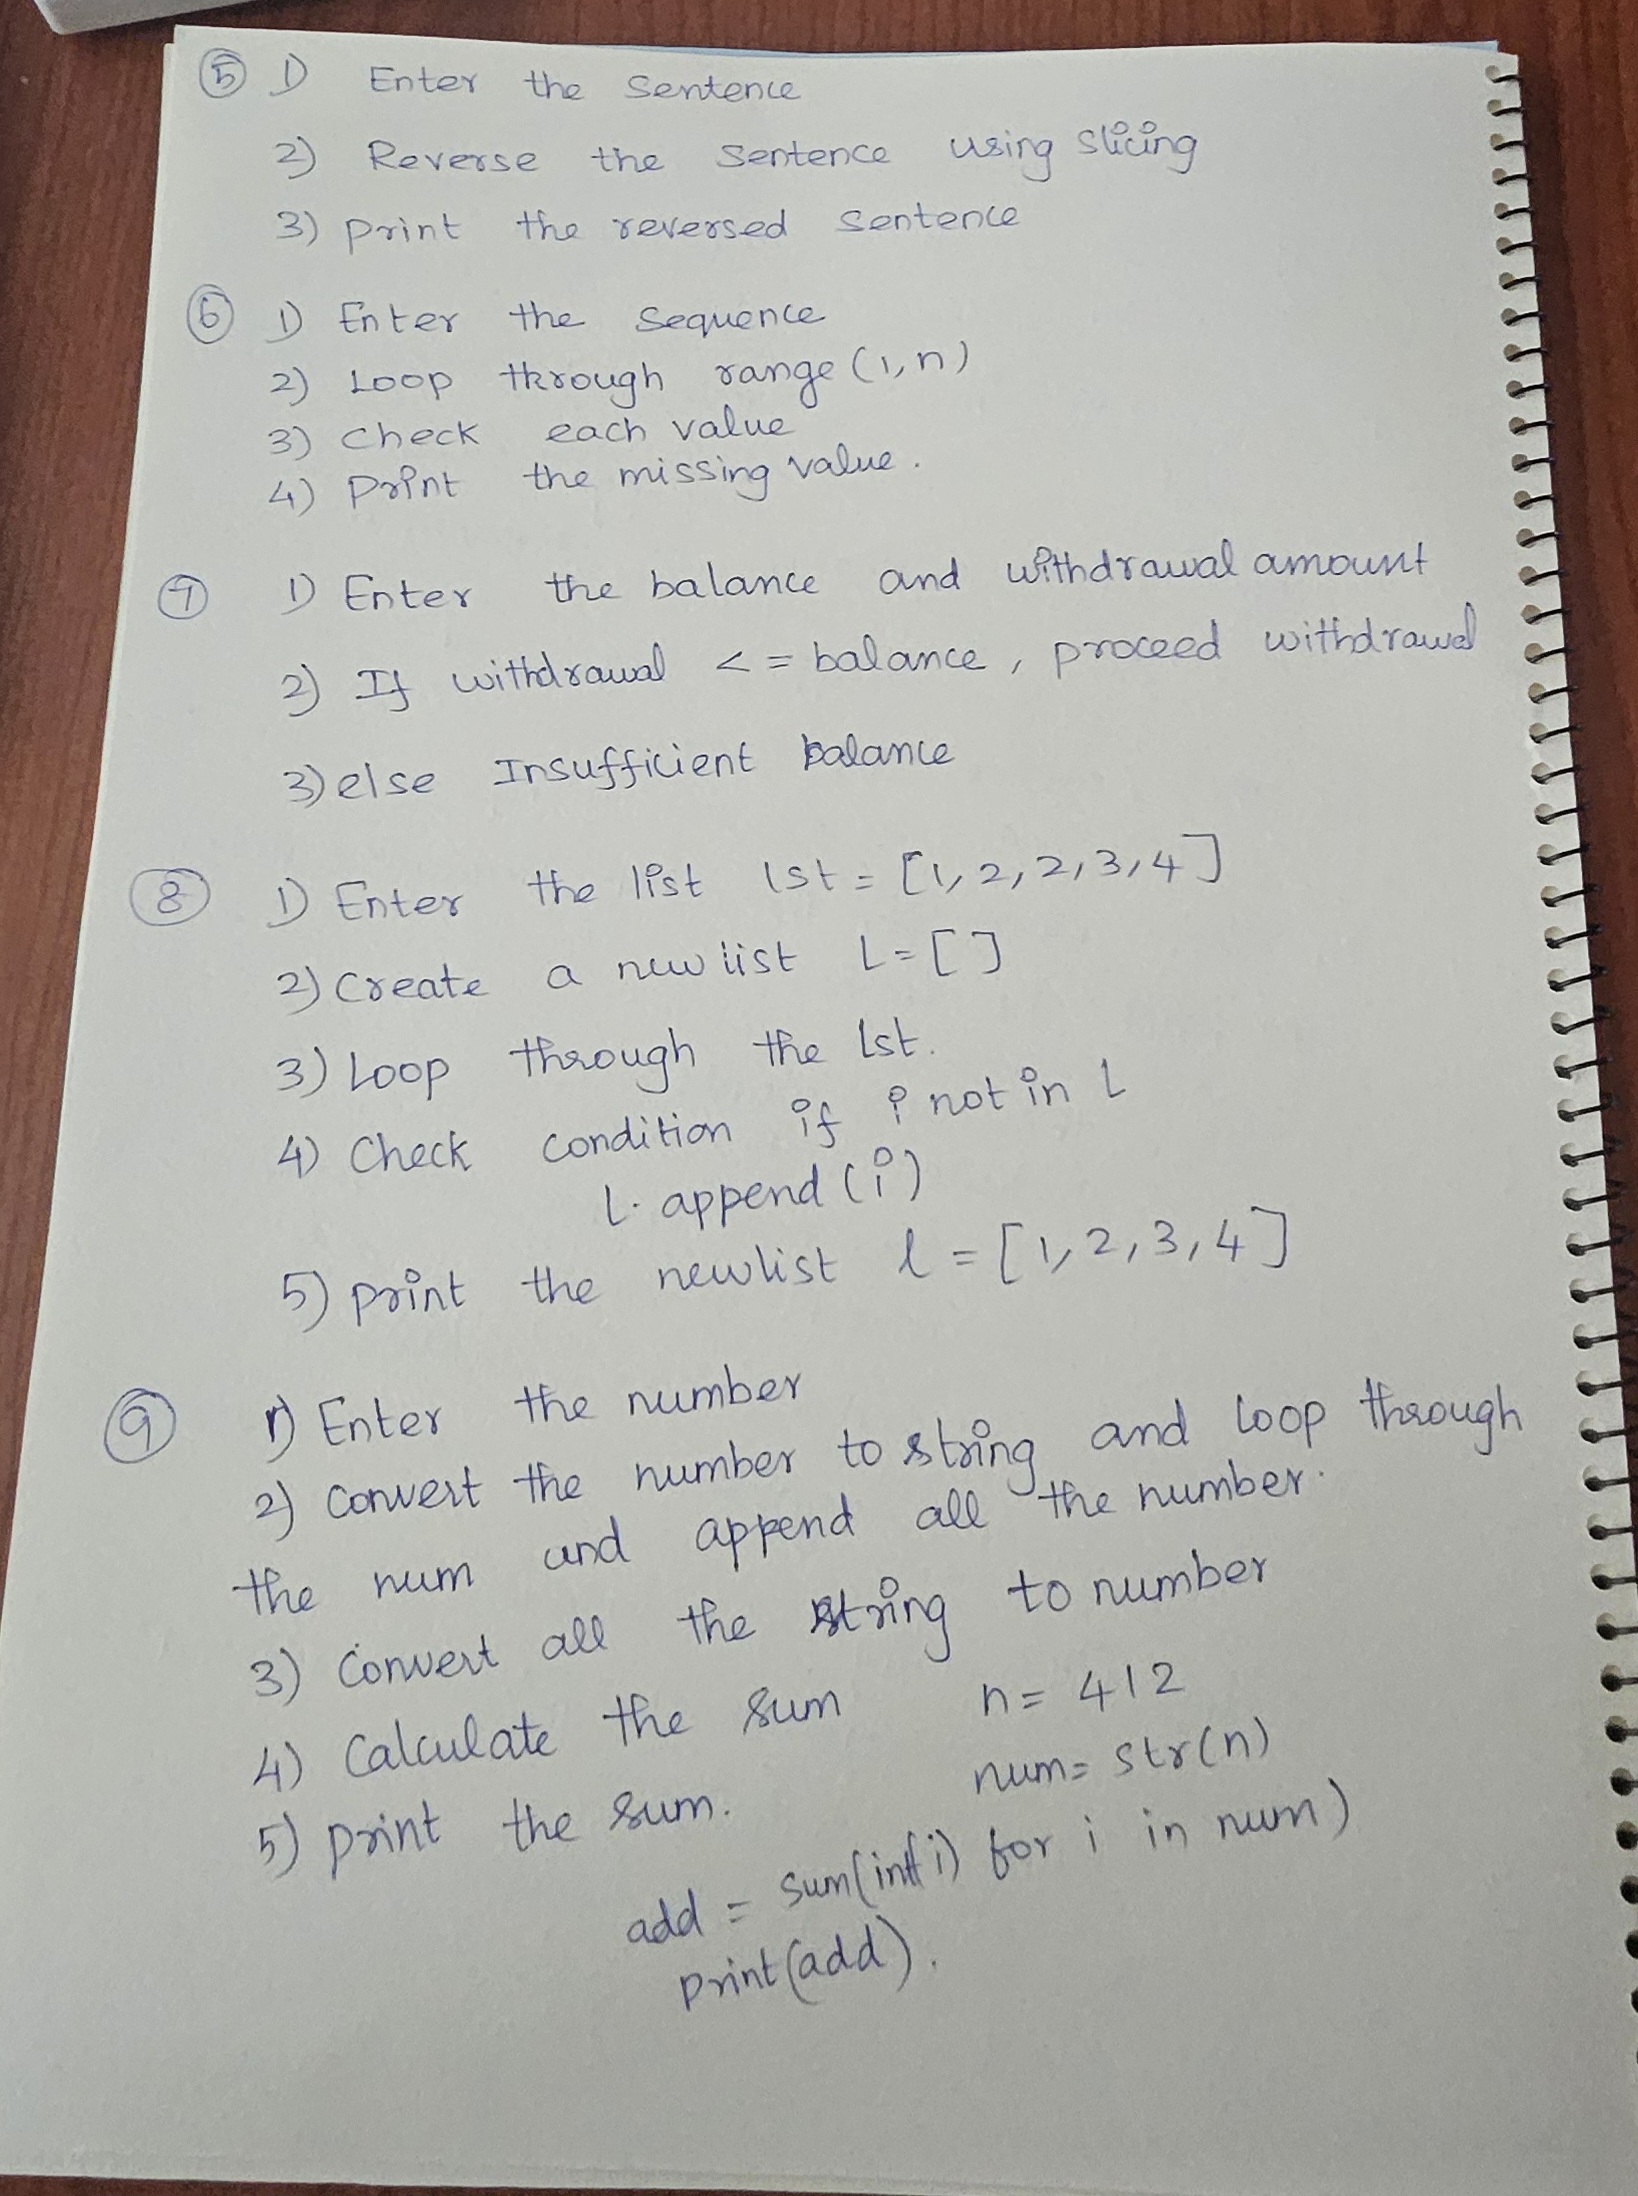 ⑤ 1) Enter the Sentence
2) Reverse the Sentence using slicing
3) print the reversed sentence
⑥ 1) Enter the sequence
2) Loop through range (1,n)
3) check each value
4) Print the missing value.
⑦ 1) Enter the balance and withdrawal amount
2) If withdrawal <= balance, proceed withdrawal
3) else Insufficient balance
⑧ 1) Enter the list lst = [1,2,2,3,4]
2) Create a new list L=[]
3) Loop through the lst.
4) Check condition if i not in l
l.append(i)
5) print the newlist l = [1,2,3,4]
⑨ 1) Enter the number
2) Convert the number to string and loop through
the num and append all the number.
3) Convert all the string to number
4) Calculate the sum n= 412
5) print the sum. num= str(n)
add = sum(int(i) for i in num)
print(add).